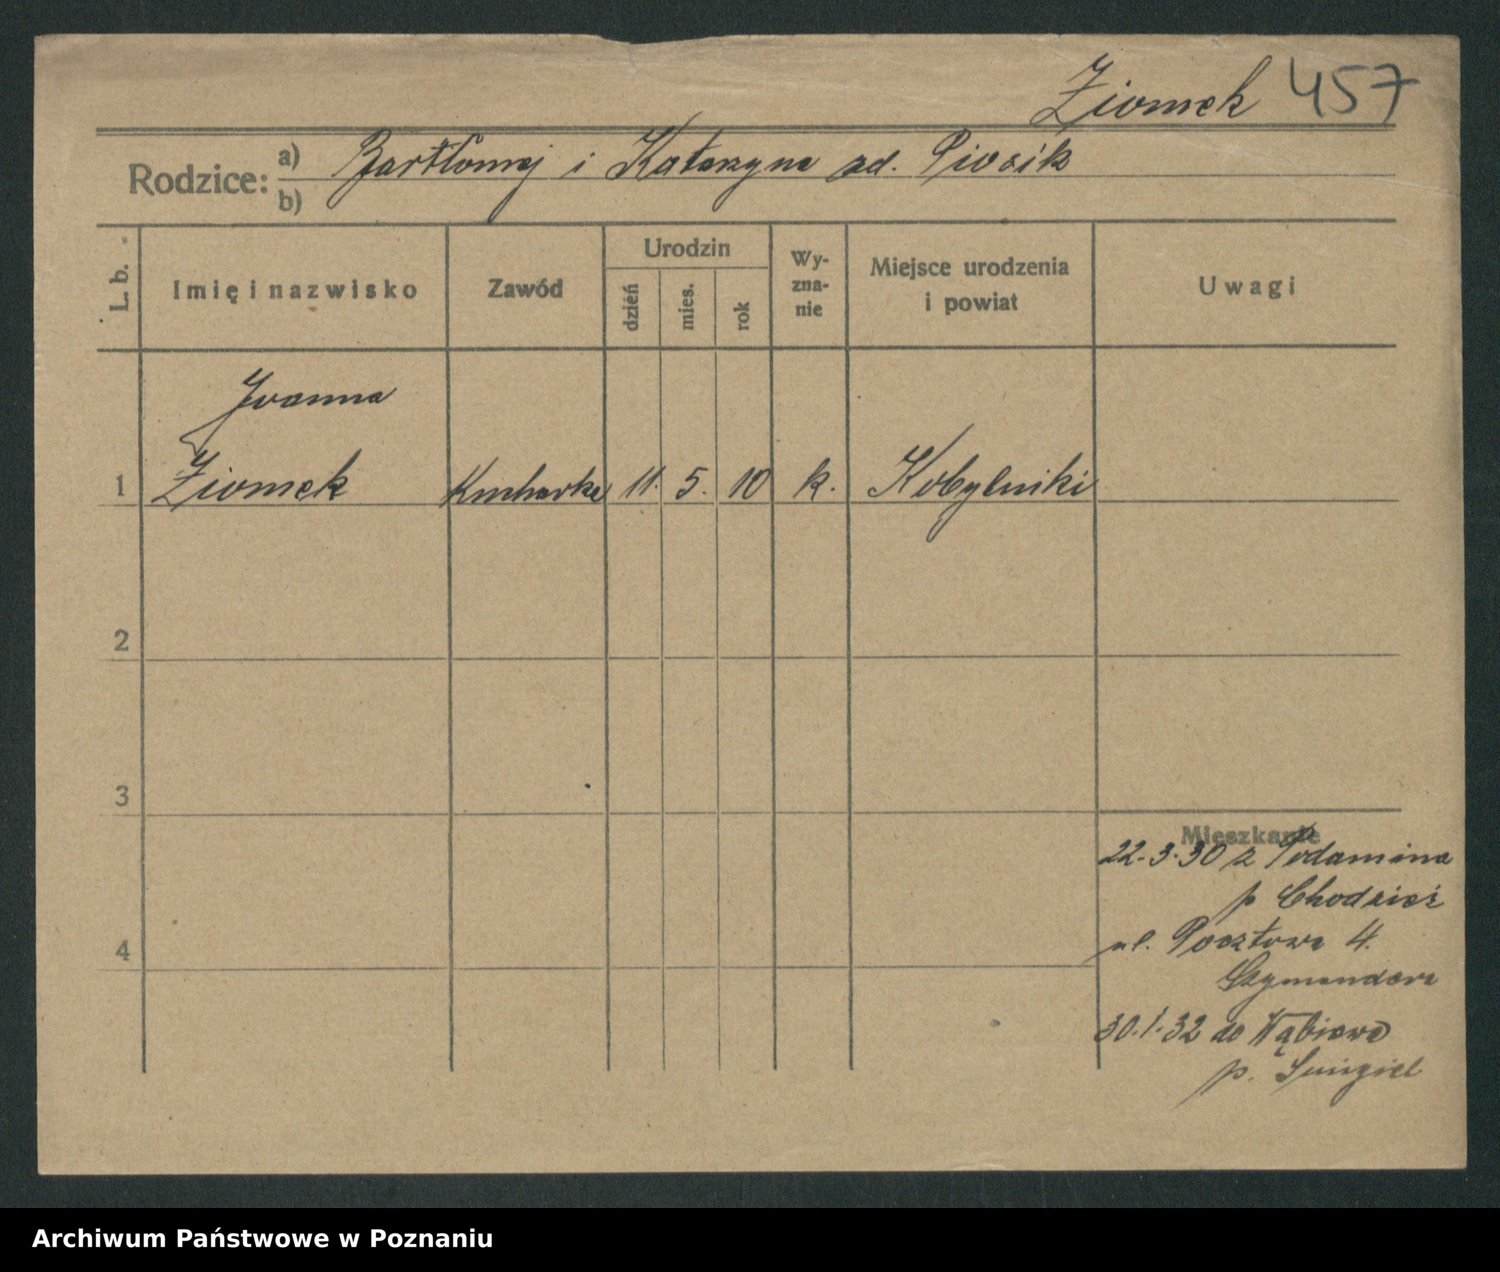 Ziomek 457
Rodzice: a) Bartłomiej i Katarzyna zd. Piosik
b)
L. b.
Imię i nazwisko
Zawód
Urodzin
dzień
mies.
rok
Wy-
zna-
nie
Miejsce urodzenia
i powiat
Uwagi
Joanna
1 Ziomek Kucharka 11. 5. 10 k. Kobylniki
2
3
4
Mieszkanie
22.3.30 z
p Chodzież
ul. Pocztowa 4.
30.1.32 do
p. Śmigiel
Archiwum Państwowe w Poznaniu